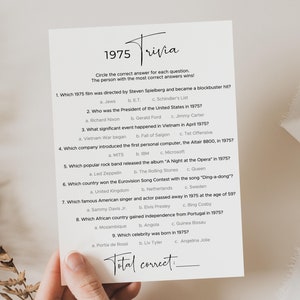 1975 Trivia
Circle the correct answer for each question.
The person with the most correct answers wins!
1. Which 1975 film was directed by Steven Spielberg and became a blockbuster hit?
a. Jaws b. E.T. c. Schindler's List
2. Who was the President of the United States in 1975?
a. Richard Nixon b. Gerald Ford c. Jimmy Carter
3. What significant event happened in Vietnam in April 1975?
a. Vietnam War began b. Fall of Saigon c. Tet Offensive
4. Which company introduced the first personal computer, the Altair 8800, in 1975?
a. MITS b. IBM c. Microsoft
5. Which popular rock band released the album "A Night at the Opera" in 1975?
a. Led Zeppelin b. The Rolling Stones c. Queen
6. Which country won the Eurovision Song Contest with the song "Ding-a-dong"?
a. United Kingdom b. Netherlands c. Sweden
7. Which famous American singer and actor passed away in 1975 at the age of 59?
a. Sammy Davis Jr. b. Elvis Presley c. Bing Crosby
8. Which African country gained independence from Portugal in 1975?
a. Mozambique b. Angola c. Guinea-Bissau
9. Which celebrity was born in 1975?
a. Portia de Rossi b. Liv Tyler c. Angelina Jolie
Total correct: